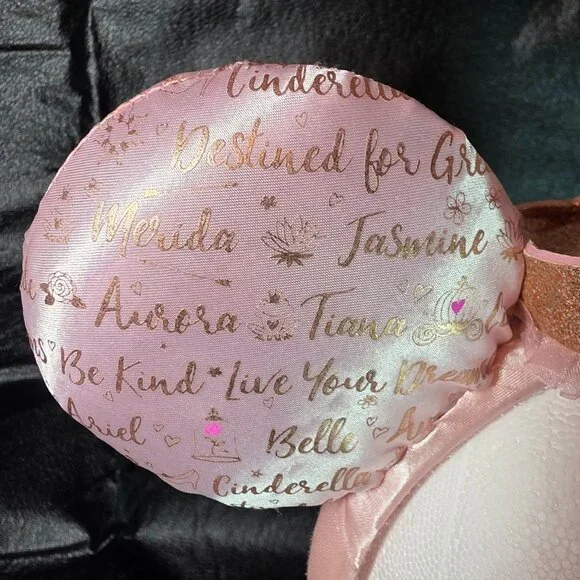 Cinderella
Destined for Gre
Merida Jasmine
Aurora Tiana
Be Kind Live Your Dream
Ariel Belle Au
Cinderella